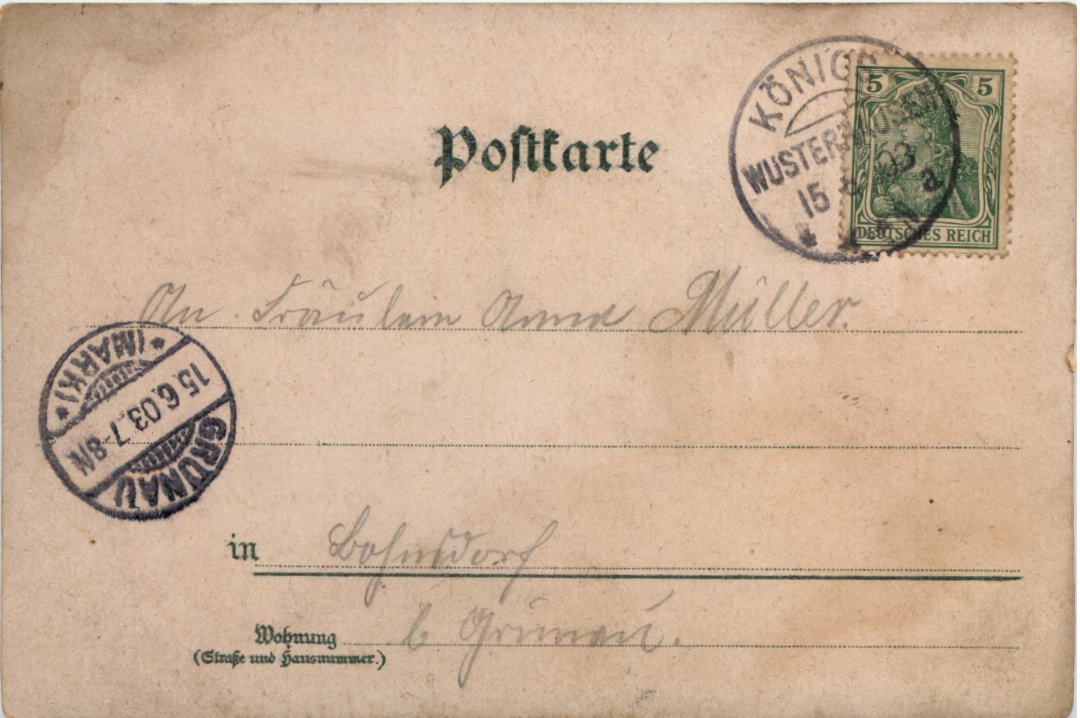 Postkarte
KÖNIGS
WUSTERHAUSEN
15 6 03
a
5 5
DEUTSCHES REICH
An Fräulein Anna Müller.
*(MARK)*
15.6.03.7-8N
GRÜNAU
in Bohnsdorf
Wohnung b. Grünau.
(Straße und Hausnummer.)